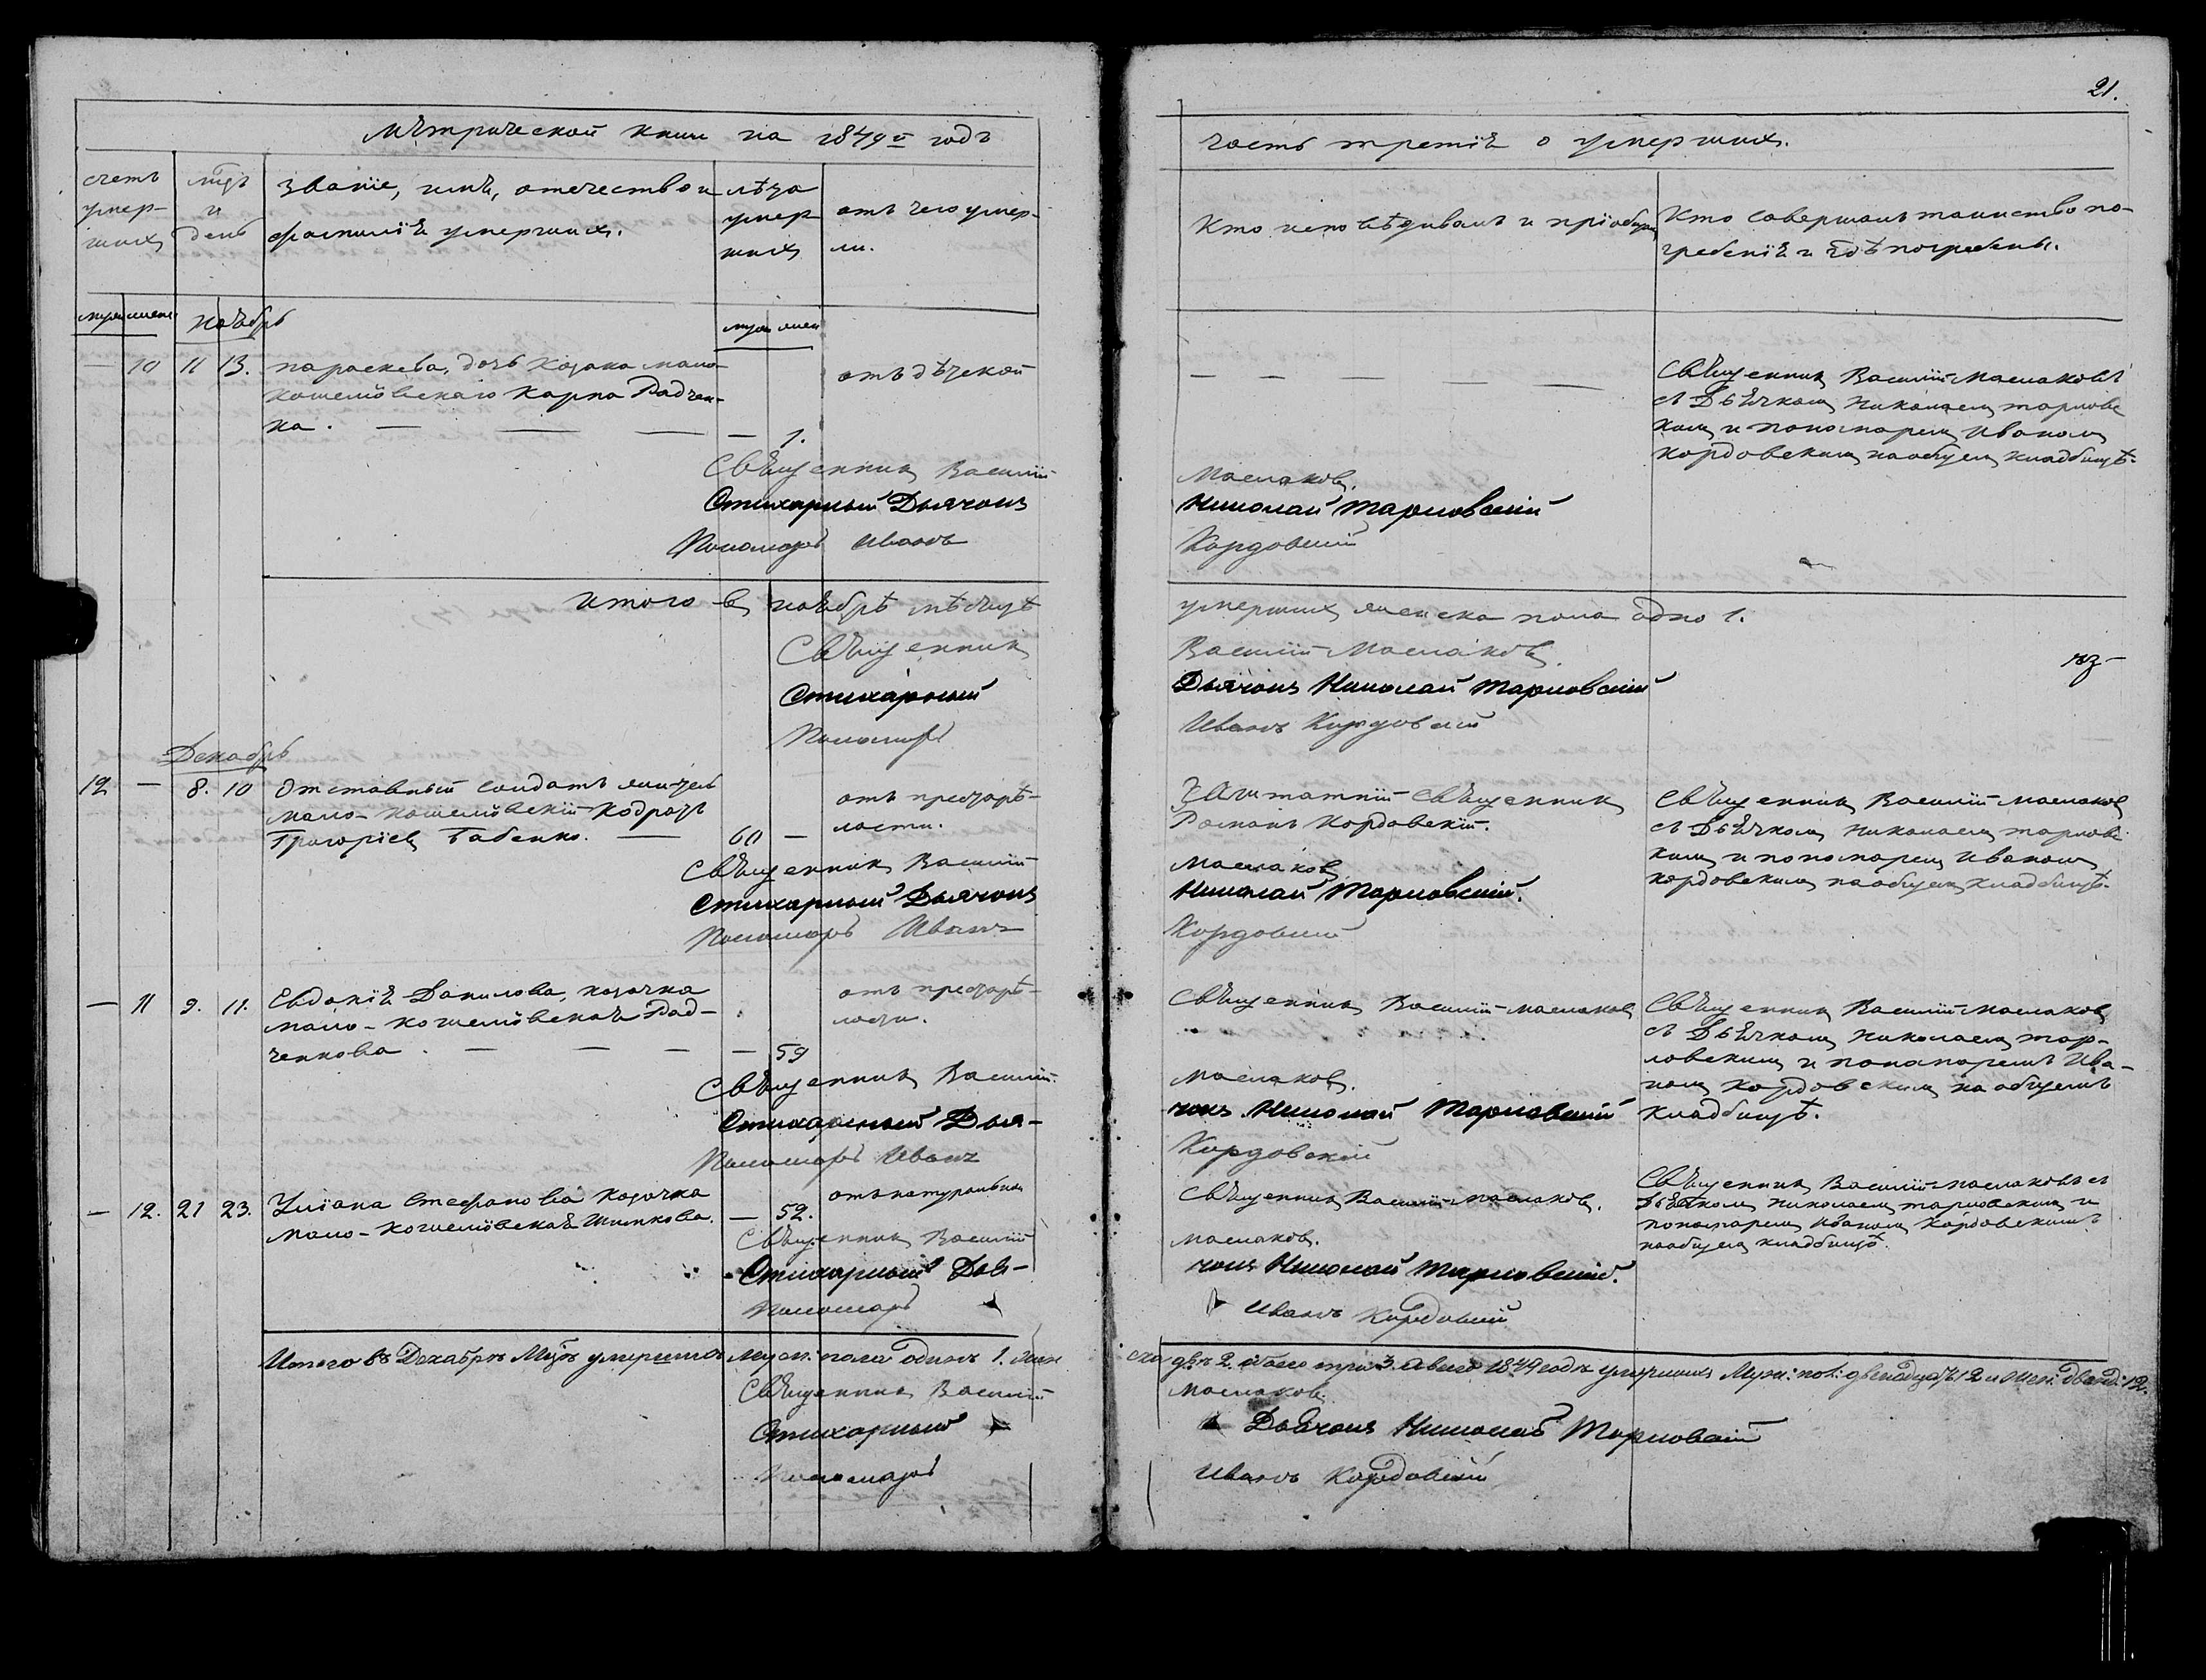 21.
Метрической книги на 1849й годъ
часть третія о умершихъ.
счетъ умер-шихъ
мцъ и день
званіе, имя, отечество и
фамилія умершихъ.
лѣта умер шихъ
отъ чего умер-
ли.
Кто исповѣдывалъ и пріобщалъ
Кто совершалъ таинство по-
гребенія и гдѣ погребены.
муж жен
ноябрь
муж жен
— 10 11 13. параскева, дочь козака мало-
кошелівскаго Карпа Радчен-
ка. — — — — 1.
отъ дѣтской
— — — — —
Священникъ Василій Маслаковъ
съ Дьячкомъ Николаемъ тарновс
кимъ и пономаремъ Иваномъ
Кордовскимъ на общемъ кладбищѣ.
Священникъ Василій Маслаковъ.
Стихарный Дьячокъ Николай Тарновскій
Пономарь Иванъ Кордовскій
итого въ ноябрѣ мѣсяцѣ умершихъ женска пола одно 1.
Священникъ Василій Маслаковъ.
Стихарный Дьячокъ Николай Тарновскій
Пономарь Иванъ Кордовскій
Декабрь
12 — 8. 10 Отставный солдатъ житель
мало-кошелівскій Кодратъ
Григоріевъ Бабенко. — 60 —
отъ престарѣ-
лости.
Заштатній священникъ
Романъ Кордовскій.
Священникъ Василій Маслаковъ
съ Дьячкомъ Николаемъ тарновс
кимъ и пономаремъ Иваномъ
кордовскимъ на общемъ кладбищѣ.
Священникъ Василій Маслаковъ
Стихарный Дьячокъ Николай Тарновскій.
Пономарь Иванъ Кордовскій
— 11 9. 11. Евдокія Данилова, козачка
мало-кошелівская Рад-
ченкова. — — — — 59
отъ престарѣ-
лости.
Священникъ Василій Маслаковъ
Священникъ Василій Маслаковъ
съ Дьячкомъ Николаемъ тар-
новскимъ и пономаремъ Ива-
номъ Кордовскимъ на общемъ
кладбищѣ.
Священникъ Василій Маслаковъ.
Стихарный Дья-чокъ Николай Тарновскій
Пономарь Иванъ Кордовскій
— 12. 21 23. Уліана Стефанова козачка
мало-кошелівская — 52.
отъ натуральной
Священникъ Василій Маслаковъ.
Священникъ Василій Маслаковъ съ
Дьячкомъ Николаемъ тарновскимъ и
пономаремъ Иваномъ Кордовскимъ
на общемъ кладбищѣ.
Священникъ Василій Маслаковъ.
Стихарный Дья-чокъ Николай Тарновскій.
Пономарь Иванъ Кордовскій
Итого въ Декабрѣ Мцѣ умершихъ муж: пола одинъ 1. жен ска двѣ 2. обоего три 3. 1849 года умершихъ Муж: пол: двенадцать 12 и жен: двенад: 12.
Священникъ Василій Маслаковъ.
Стихарный Дьячокъ Николай Тарновскій
Пономарь Иванъ Кордовскій